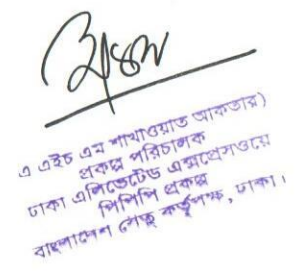 এ এইচ এম শাখাওয়াত আকতার)
প্রকল্প পরিচালক
ঢাকা এলিভেটেড এক্সপ্রেসওয়ে
পিপিপি প্রকল্প
বাংলাদেশ সেতু কর্তৃপক্ষ, ঢাকা।